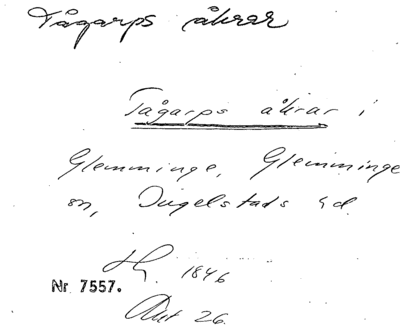 Tågarps åkrar
Tågarps åkrar i
Glemminge, Glemminge
sn, Ingelstads hd.
1846
Nr 7557.
Akt 26.